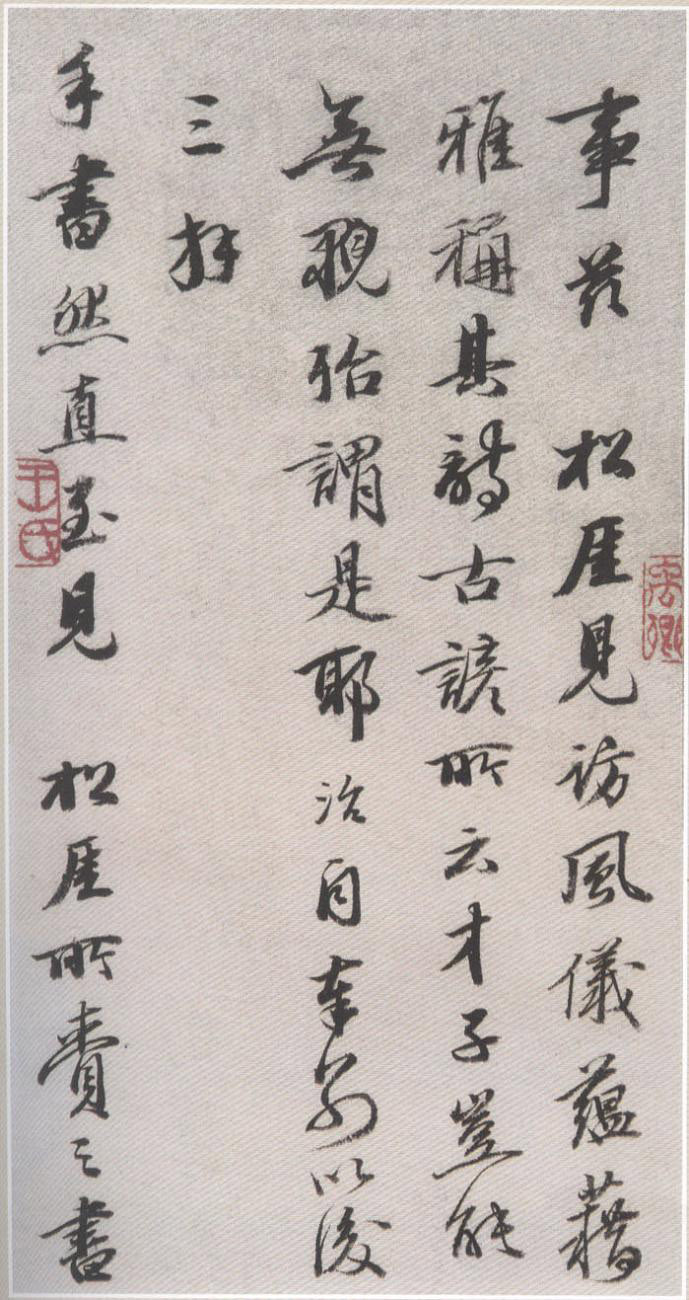 禹卿
事茲 松厓見訪風儀蘊藉
雅稱其詩古諺所云才子豈能
無貌殆謂是耶治自奉別以後
三拜
手書然直至見 松厓所賫之書
王氏